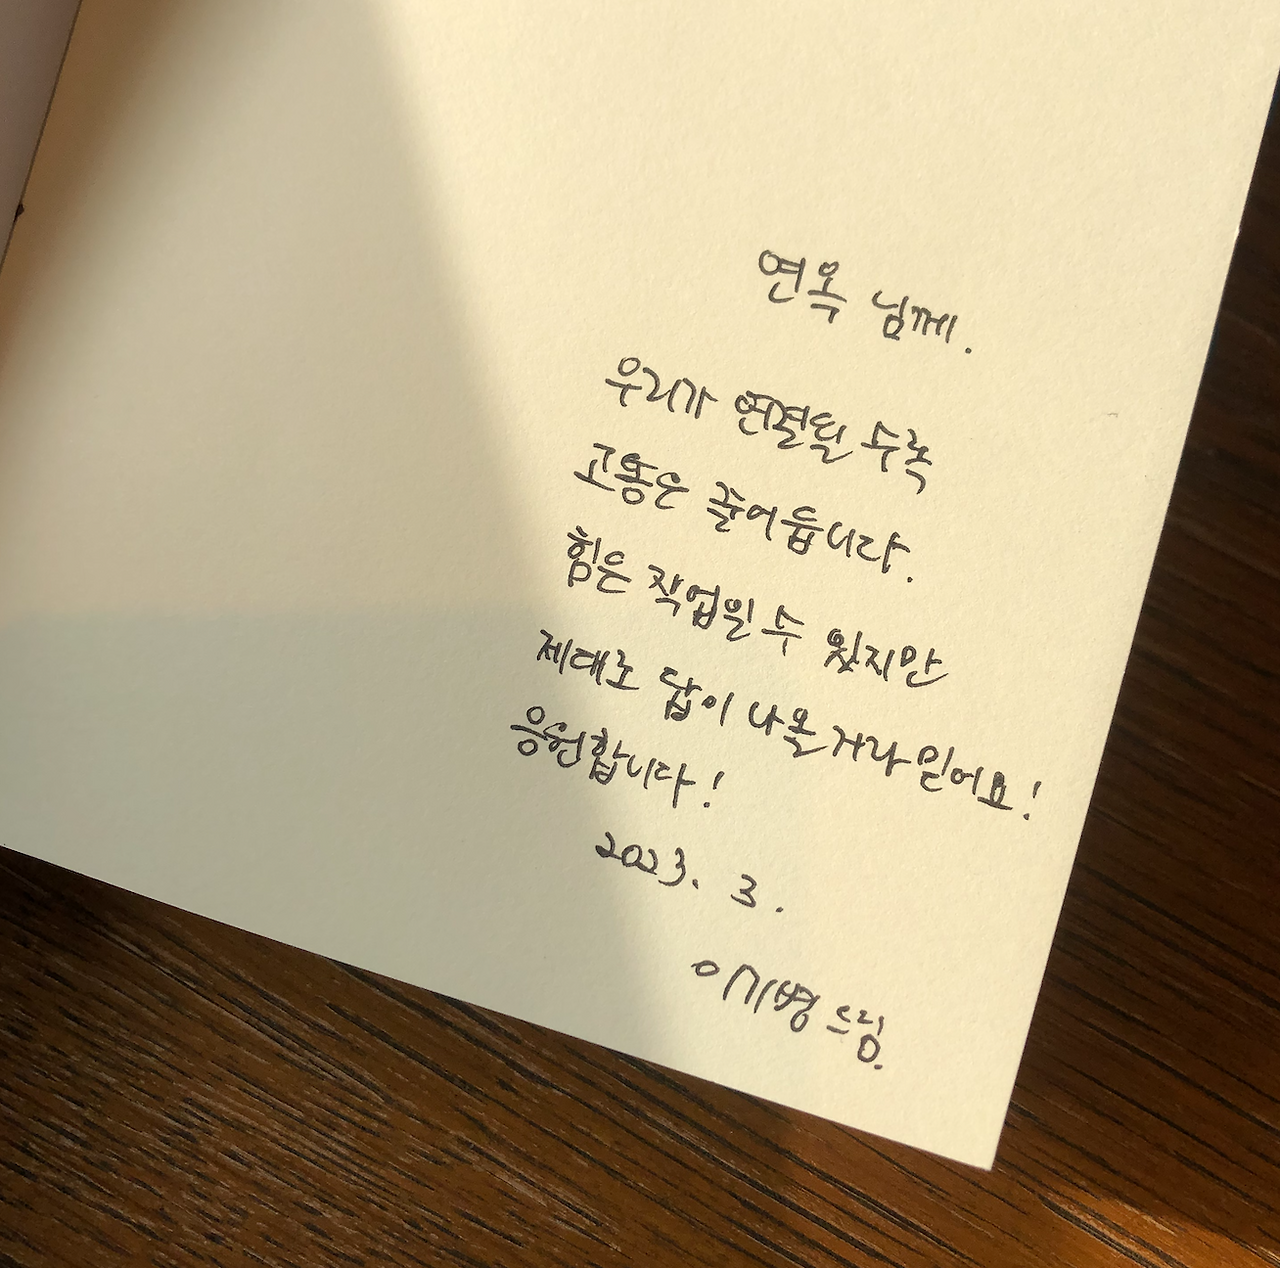 연옥 님께.
우리가 연결될 수록
고통은 줄어듭니다.
힘든 작업일 수 있지만
제대로 답이 나올 거라 믿어요!
응원합니다!
2023. 3.
이기병 드림.